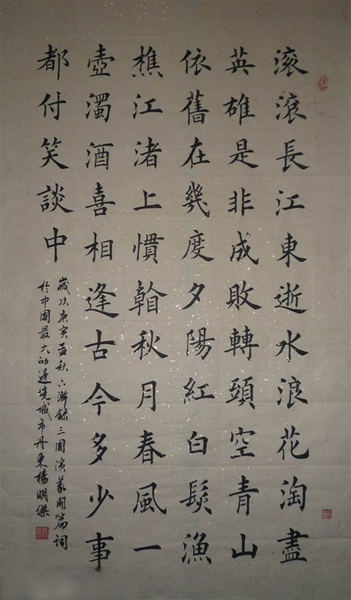 滚滚長江東逝水浪花淘盡
英雄是非成敗轉頭空青山
依舊在幾度夕陽紅白髮漁
樵江渚上慣翰秋月春風一
壺濁酒喜相逢古今多少事
都付笑談中
歲次庚寅孟秋錄三國演義開篇詞
於中國最大的邊境城市丹東楊明傑